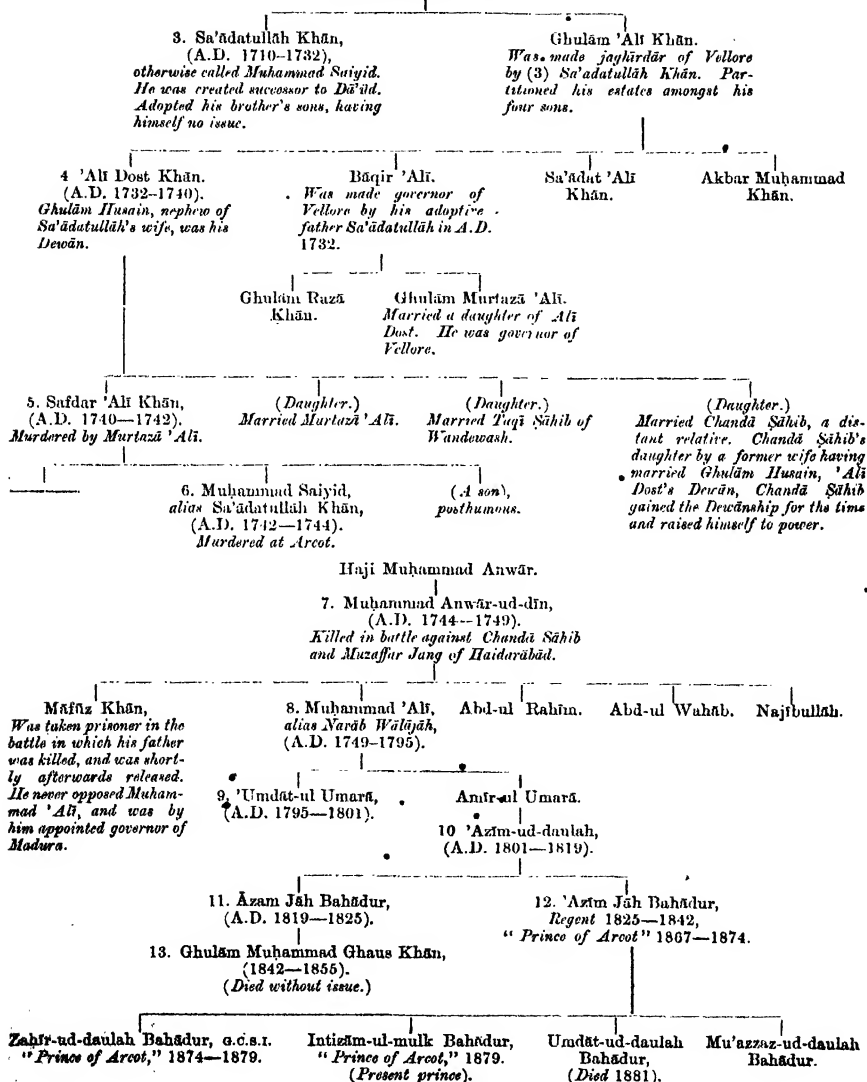 3. Sa'ādatullāh Khān,
(A.D. 1710–1732),
otherwise called Muhammad Saiyid.
He was created successor to Dā'ūd.
Adopted his brother's sons, having
himself no issue.
Ghulām 'Alī Khān.
Was made jaghīrdār of Vellore
by (3) Sa'adatullāh Khān. Par-
titioned his estates amongst his
four sons.
4 'Alī Dost Khān.
(A.D. 1732–1740).
Ghulām Husain, nephew of
Sa'ādatullāh's wife, was his
Dewān.
Bāqir 'Alī.
Was made governor of
Vellore by his adoptive
father Sa'ādatullāh in A.D.
1732.
Sa'ādat 'Alī
Khān.
Akbar Muḥammad
Khān.
Ghulām Razā
Khān.
Ghulām Murtazā 'Alī.
Married a daughter of Alī
Dost. He was governor of
Vellore.
5. Safdar 'Alī Khān,
(A.D. 1740–1742).
Murdered by Murtazā 'Alī.
(Daughter.)
Married Murtazā 'Alī.
(Daughter.)
Married Taqī Ṣāhib of
Wandewash.
(Daughter.)
Married Chandā Ṣāhib, a dis-
tant relative. Chandā Ṣāhib's
daughter by a former wife having
married Ghulām Husain, 'Alī
Dost's Dewān, Chandā Ṣāhib
gained the Dewānship for the time
and raised himself to power.
6. Muḥammad Saiyid,
alias Sa'ādatullāh Khān,
(A.D. 1742–1744).
Murdered at Arcot.
(A son),
posthumous.
Haji Muḥammad Anwār.
7. Muḥammad Anwār-ud-dīn,
(A.D. 1744--1749).
Killed in battle against Chandā Sāhib
and Muzaffar Jang of Haidarābād.
Māfūz Khān,
Was taken prisoner in the
battle in which his father
was killed, and was short-
ly afterwards released.
He never opposed Muham-
mad 'Alī, and was by
him appointed governor of
Madura.
8. Muḥammad 'Alī,
alias Navāb Wālājāh,
(A.D. 1749-1795).
Abd-ul Rahīm.
Abd-ul Wahāb.
Najībullāh.
9. 'Umdāt-ul Umarā,
(A.D. 1795—1801).
Amīr-ul Umarā.
10 'Azīm-ud-daulah,
(A.D. 1801—1819).
11. Āzam Jāh Bahādur,
(A.D. 1819—1825).
12. 'Azīm Jāh Bahādur,
Regent 1825—1842,
"Prince of Arcot" 1867—1874.
13. Ghulām Muḥammad Ghaus Khān,
(1842—1855).
(Died without issue.)
Zahīr-ud-daulah Bahādur, G.C.S.I.
"Prince of Arcot," 1874—1879.
Intizām-ul-mulk Bahādur,
"Prince of Arcot," 1879.
(Present prince).
Umdāt-ud-daulah
Bahādur,
(Died 1881).
Mu'azzaz-ud-daulah
Bahādur.